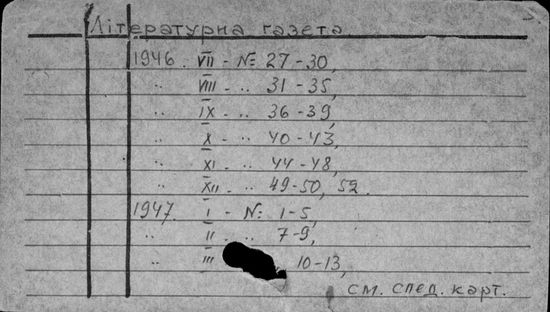 Літературна газета
1946. VII - №: 27-30,
·· VIII - ·· 31-35,
·· IX - ·· 36-39,
·· X - ·· 40-43,
·· XI - ·· 44-48,
·· XII - ·· 49-50, 52.
1947. I - №: 1-5,
·· II - ·· 7-9,
·· III 10-13,
см. след. карт.